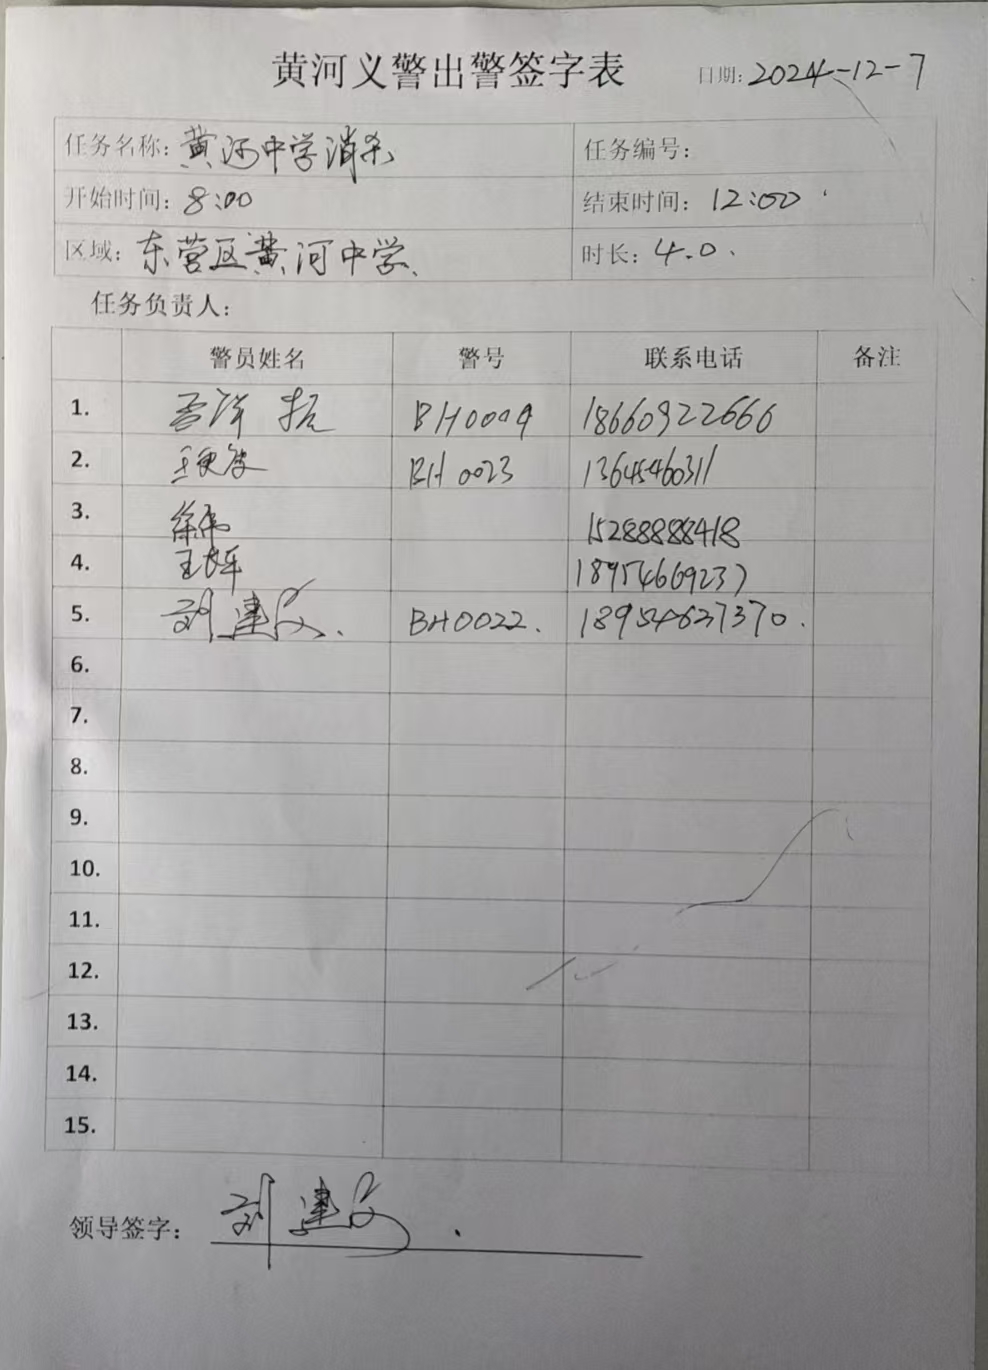 黄河义警出警签字表 日期: 2024-12-7
任务名称: 黄河中学消杀 任务编号:
开始时间: 8:00 结束时间: 12:00
区域: 东营区黄河中学. 时长: 4.0.
任务负责人:
警员姓名 警号 联系电话 备注
1. BH0009 18660922666
2. BH0023 13645460311
3. 徐伟 15288888418
4. 王长军 18954669237
5. 刘建 BH0022. 18954637370.
6.
7.
8.
9.
10.
11.
12.
13.
14.
15.
领导签字: 刘建